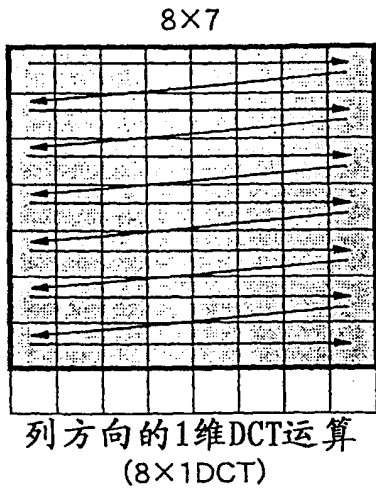 8×7
列方向的1维DCT运算
(8×1DCT)